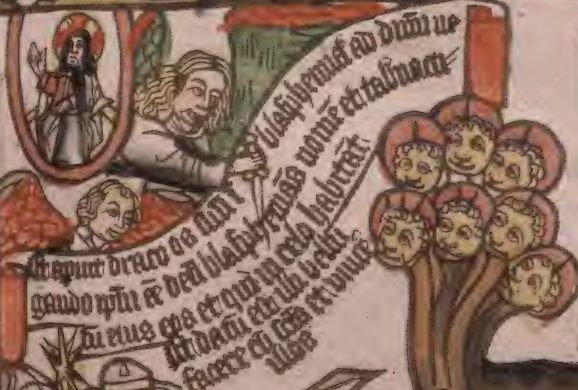 Et apuit draco os suū ī blasphemias ad diuiū ne
gando ipſū eē deū blaſphemās nomē et tabnacu
lū eius eos et qui in celo habitāt
Et datū est illi bellū
facere cū scīs et vīce
illos